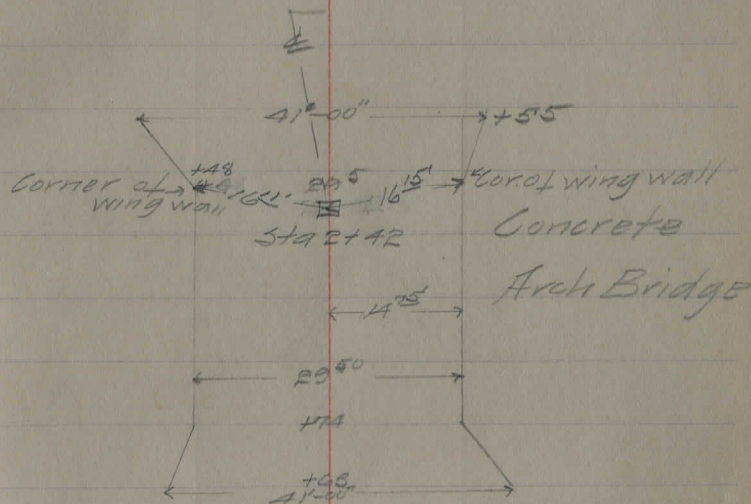 ℄
41'-00"
+55
+48
Corner of
wing wall
29⁵
16¹⁵'
Cor. of wing wall
Sta 2+42
Concrete
Arch Bridge
14⁷⁵
29⁵⁰
+74
+68
41'-00"